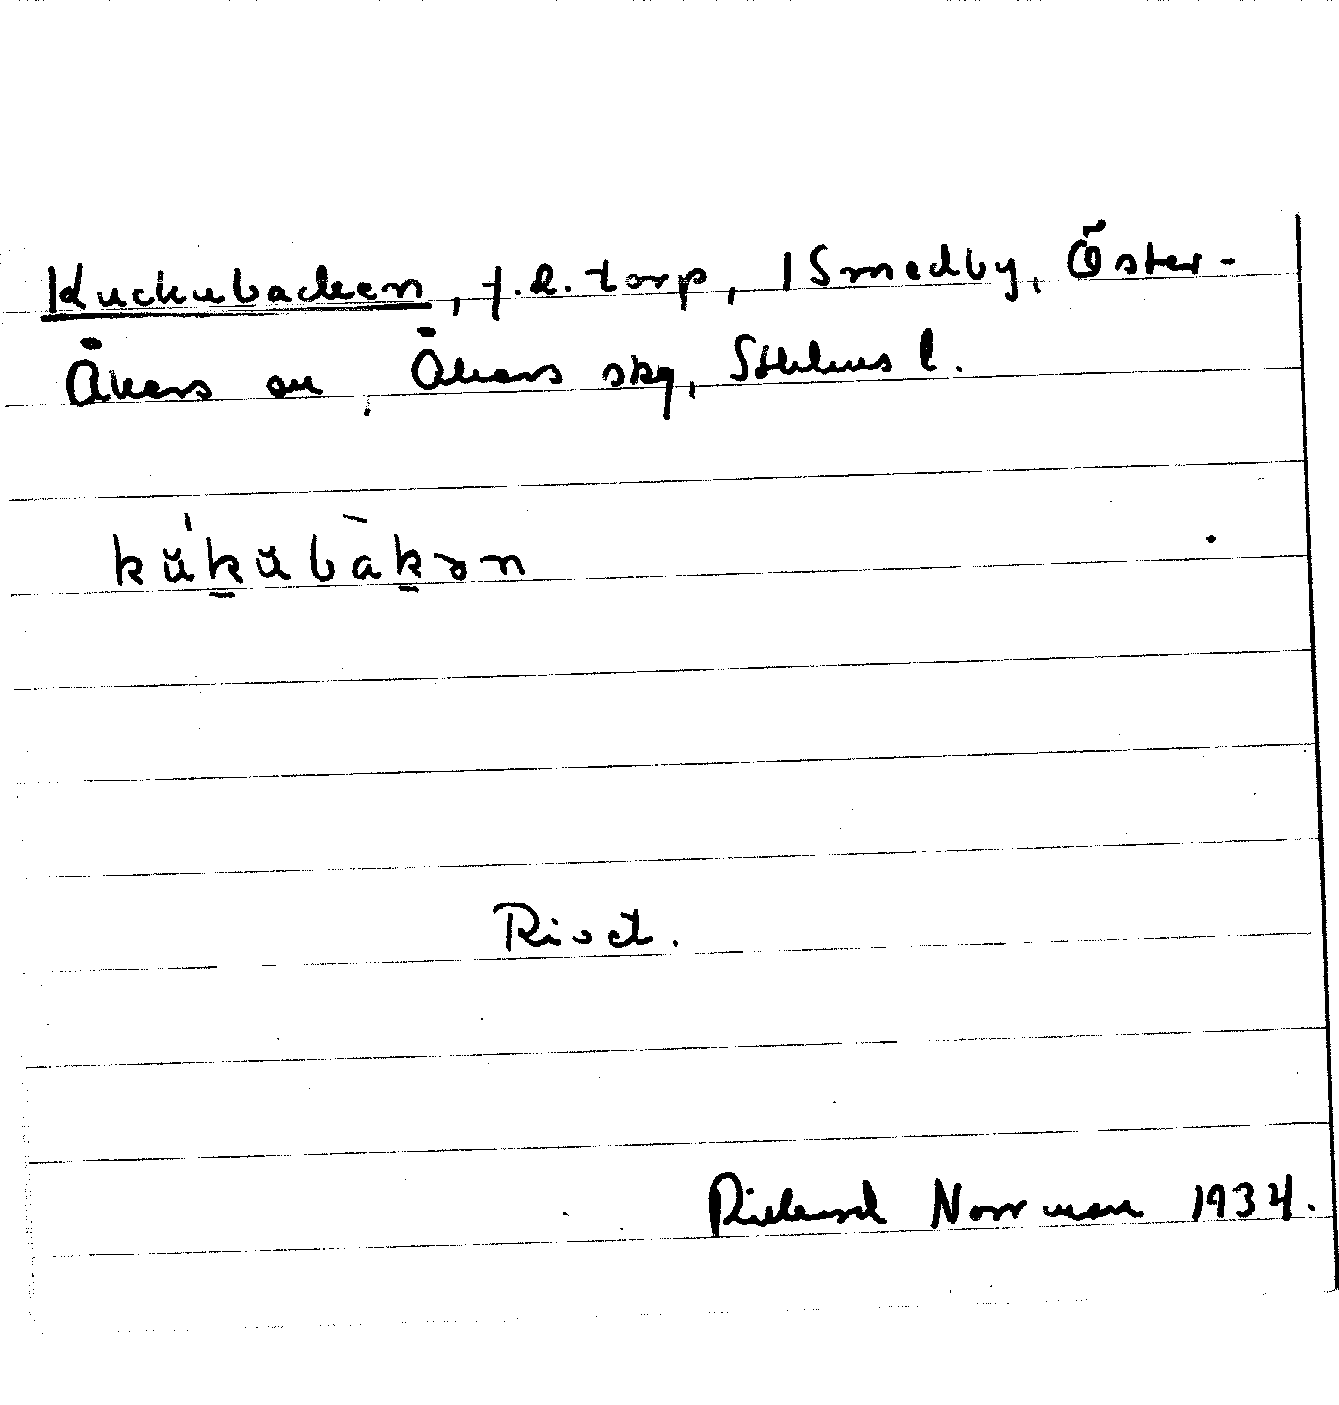 Kuckubacken, f.d. torp, 1 Smedby, Öster-
Åkers sn, Åkers skg, Sthlms l.
kŭ́k̠ŭbàk̠ən
Rivet.
Rickard Norrman 1934.